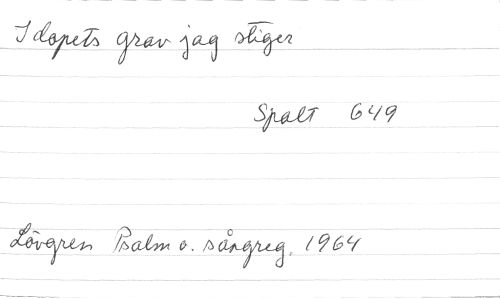 I dopets grav jag stiger
Spalt 649
Lövgren Psalm o. sångreg. 1964